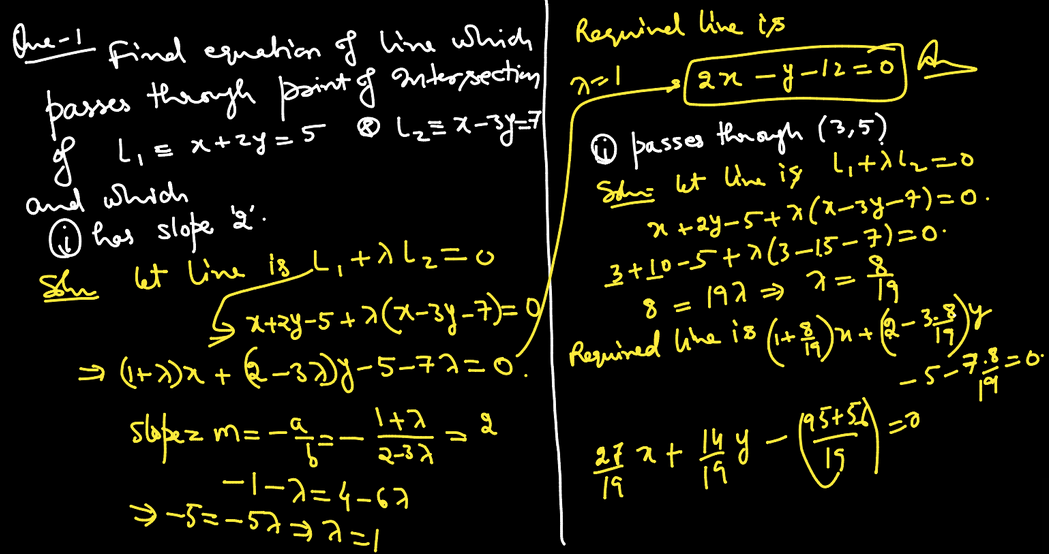 Que-1 Find equation of line which
passes through point of intersection
of L₁ ≡ x+2y=5 & L₂ ≡ x-3y=7
and which
(i) has slope '2'.
Soln let line is L₁+λL₂=0
x+2y-5+λ(x-3y-7)=0
⇒ (1+λ)x + (2-3λ)y-5-7λ=0.
slope= m=-a/b=-(1+λ)/(2-3λ)=2
-1-λ=4-6λ
⇒ -5=-5λ ⇒ λ=1
Required line is
λ=1 → 2x-y-12=0 Ans
(ii) passes through (3,5)
Soln= let line is L₁+λL₂=0
x+2y-5+λ(x-3y-7)=0.
3+10-5+λ(3-15-7)=0.
8 = 19λ ⇒ λ = 8/19
Required line is (1+8/19)x+(2-3·8/19)y
-5-7·8/19=0.
27/19 x+14/19 y-((95+56)/19)=0